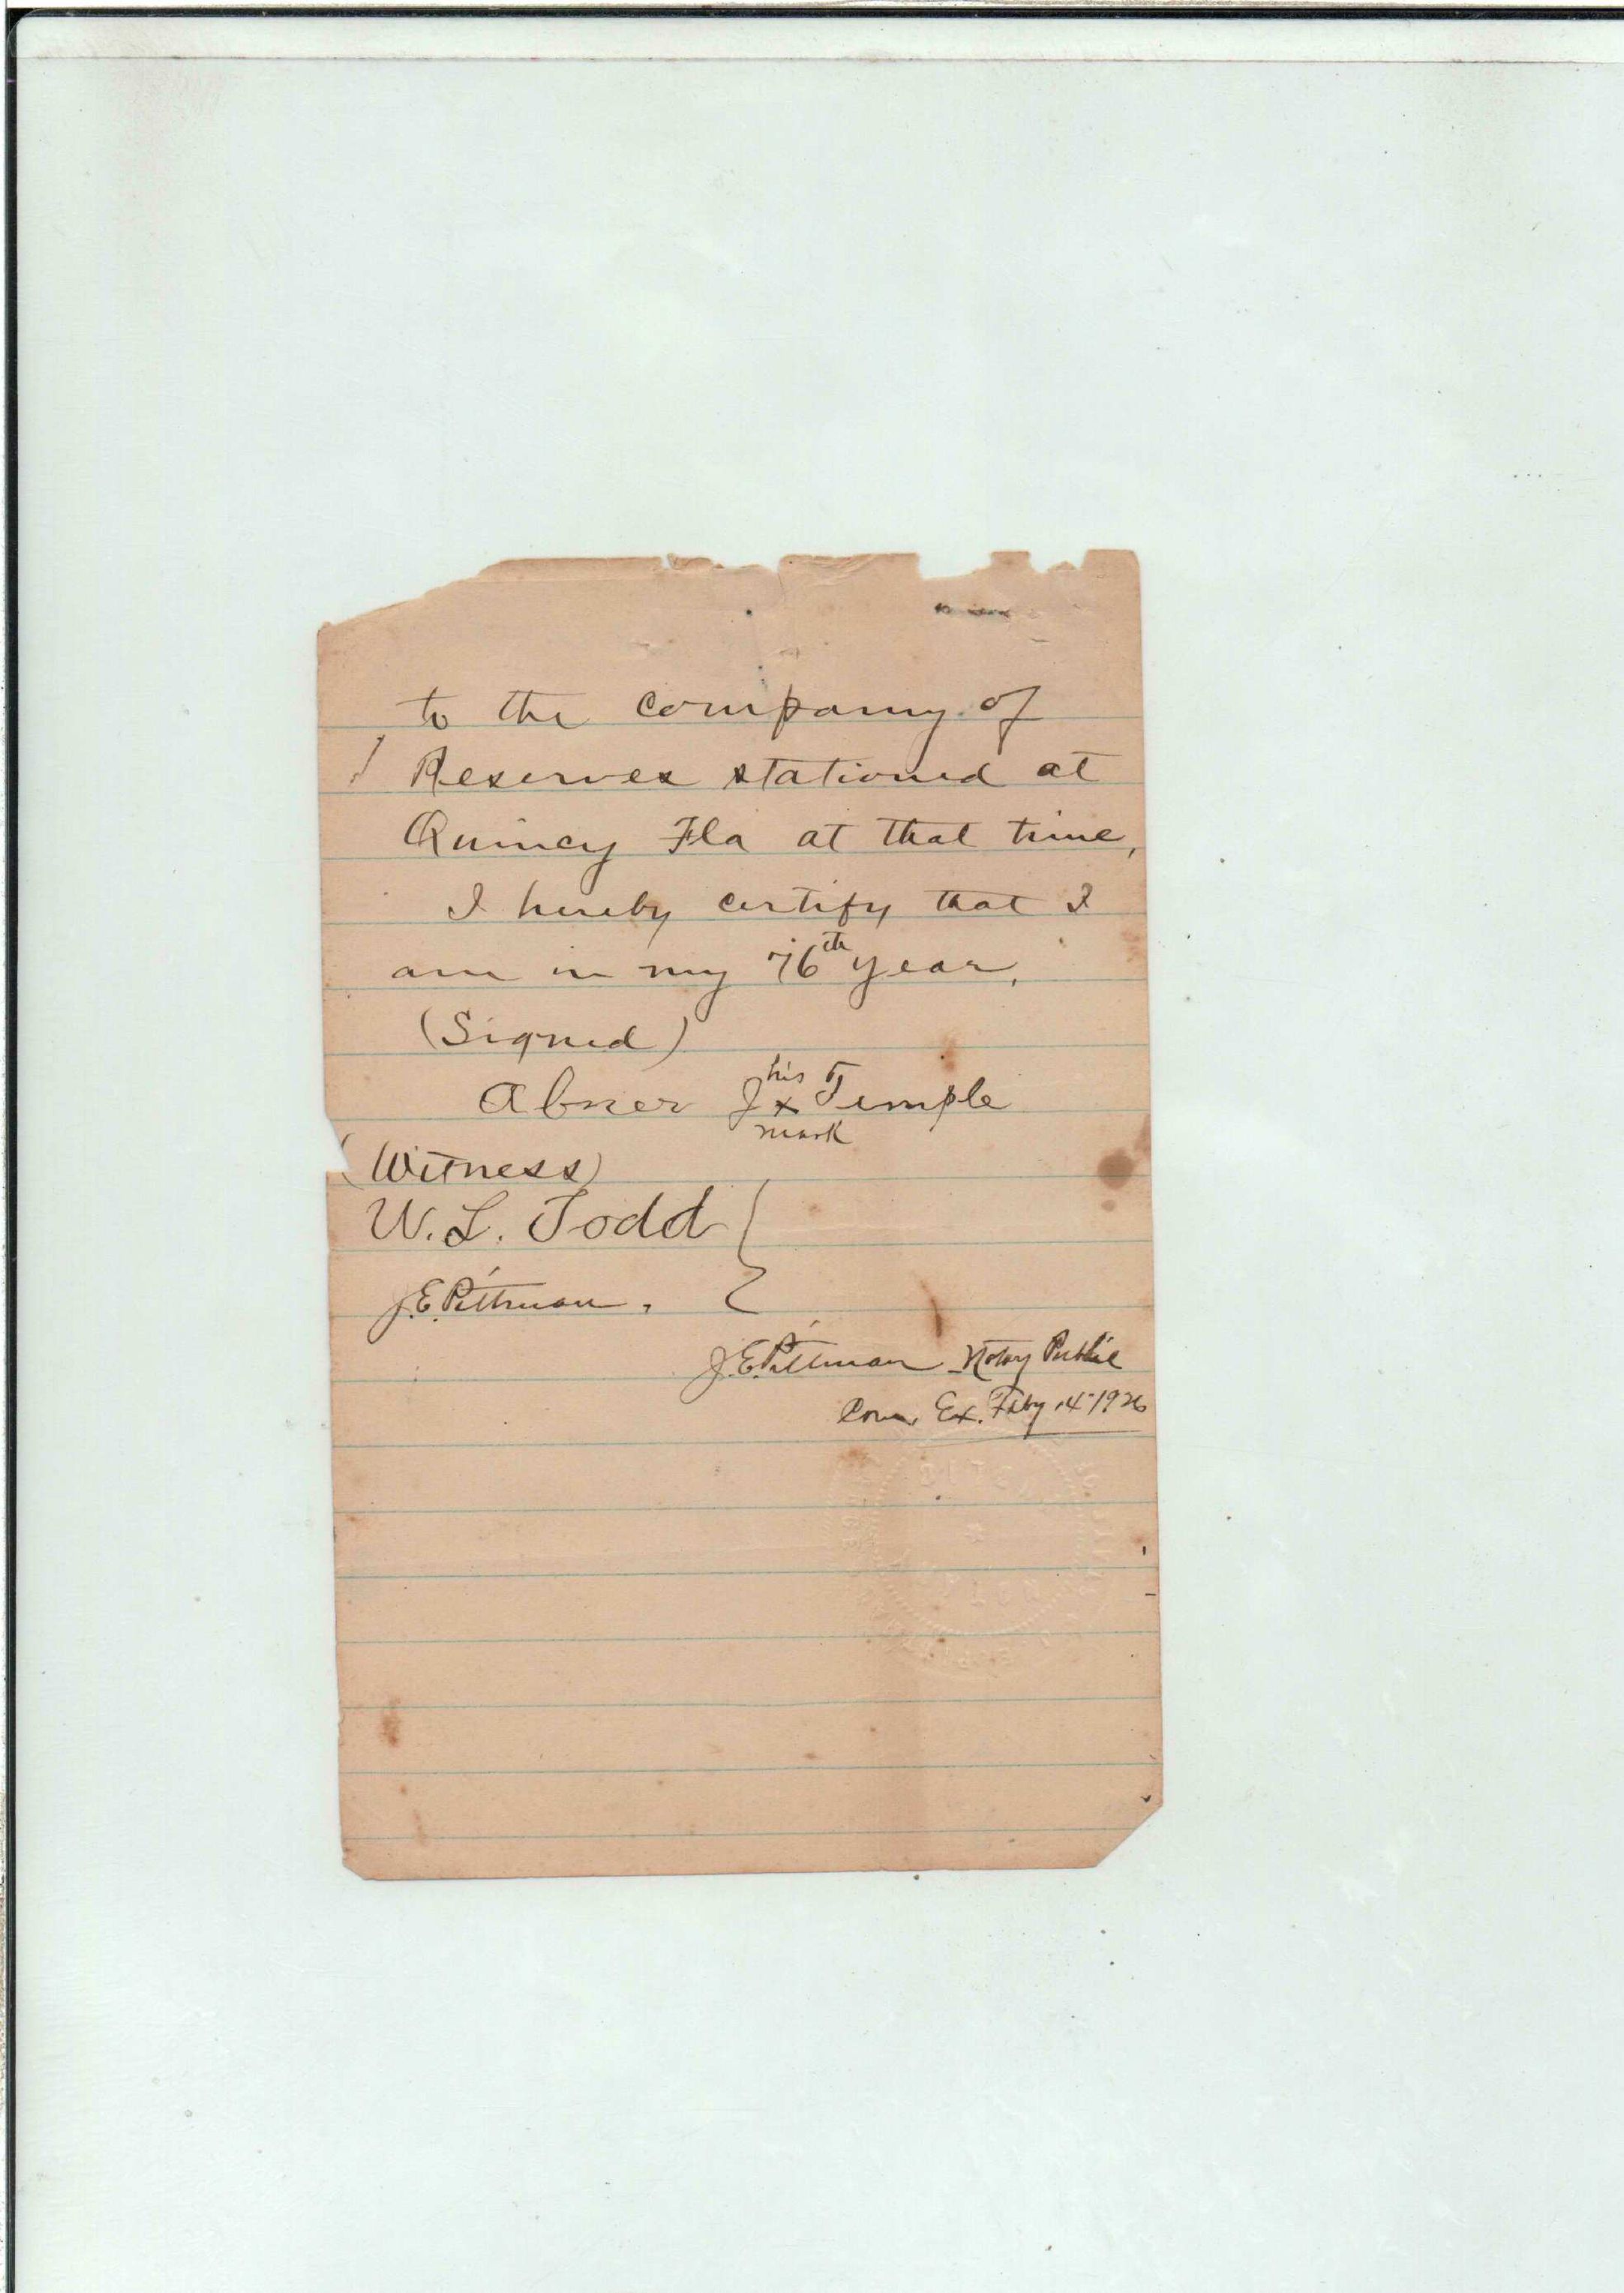 to the company of
Reserves stationed at
Quincy Fla at that time,
I hereby certify that I
am in my 76th year.
(Signed)
his
Abner J x Temple
mark
(Witness)
W. L. Todd
J. E. Pittman.
J. E. Pittman Notary Public
Com. Ex. Feby 14-1926